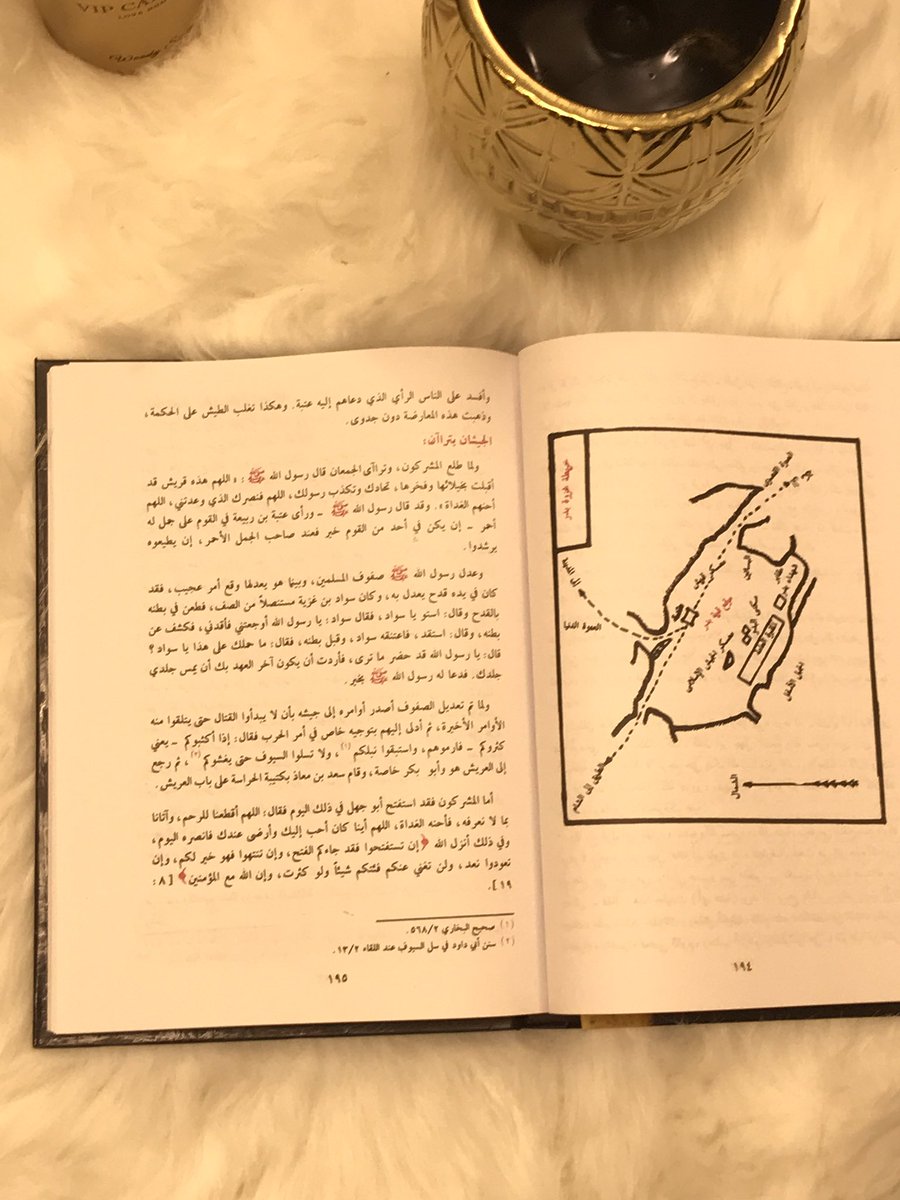 VIP CA
وأفسد على الناس الرأي الذي دعاهم إليه عتبة. وهكذا تغلب الطيش على الحكمة،
وذهبت هذه المعارضة دون جدوى.
الجيشان يتراآن:
ولما طلع المشركون، وتراآى الجمعان قال رسول الله ﷺ : «اللهم هذه قريش قد
أقبلت بخيلائها وفخرها، تحادك وتكذب رسولك، اللهم فنصرك الذي وعدتني، اللهم
أحنهم الغداة». وقد قال رسول الله ﷺ ـ ورأى عتبة بن ربيعة في القوم على جمل له
أحمر ـ إن يكن في أحد من القوم خير فعند صاحب الجمل الأحمر، إن يطيعوه
يرشدوا.
وعدل رسول الله ﷺ صفوف المسلمين، وبينما هو يعدلها وقع أمر عجيب، فقد
كان في يده قدح يعدل به، وكان سواد بن غزية مستنصلاً من الصف، فطعن في بطنه
بالقدح وقال: استو يا سواد، فقال سواد: يا رسول الله أوجعتني فأقدني، فكشف عن
بطنه، وقال: استقد، فاعتنقه سواد، وقبل بطنه، فقال: ما حملك على هذا يا سواد؟
قال: يا رسول الله قد حضر ما ترى، فأردت أن يكون آخر العهد بك أن يمس جلدي
جلدك. فدعا له رسول الله ﷺ بخير.
ولما تم تعديل الصفوف أصدر أوامره إلى جيشه بأن لا يبدأوا القتال حتى يتلقوا منه
الأوامر الأخيرة، ثم أدلى إليهم بتوجيه خاص في أمر الحرب فقال: إذا أكثبوكم ـ يعني
كثروكم ـ فارموهم، واستبقوا نبلكم (١)، ولا تسلوا السيوف حتى يغشوكم (٢)، ثم رجع
إلى العريش هو وأبو بكر خاصة، وقام سعد بن معاذ بكتيبة الحراسة على باب العريش.
أما المشركون فقد استفتح أبو جهل في ذلك اليوم فقال: اللهم أقطعنا للرحم، وآتانا
بما لا نعرفه، فأحنه الغداة، اللهم أينا كان أحب إليك وأرضى عندك فانصره اليوم،
وفي ذلك أنزل الله ﴿إن تستفتحوا فقد جاءكم الفتح، وإن تنتهوا فهو خير لكم، وإن
تعودوا نعد، ولن تغني عنكم فئتكم شيئاً ولو كثرت، وإن الله مع المؤمنين﴾ [٨:
١٩].
(١) صحيح البخاري ٥٦٨/٢.
(٢) سنن أبي داود في سل السيوف عند اللقاء ١٣/٢.
١٩٥
خريطة غزوة بدر
العدوة القصوى
إلى المدينة
العدوة الدنيا
معسكر الجيش الإسلامي
الشمال
١٩٤